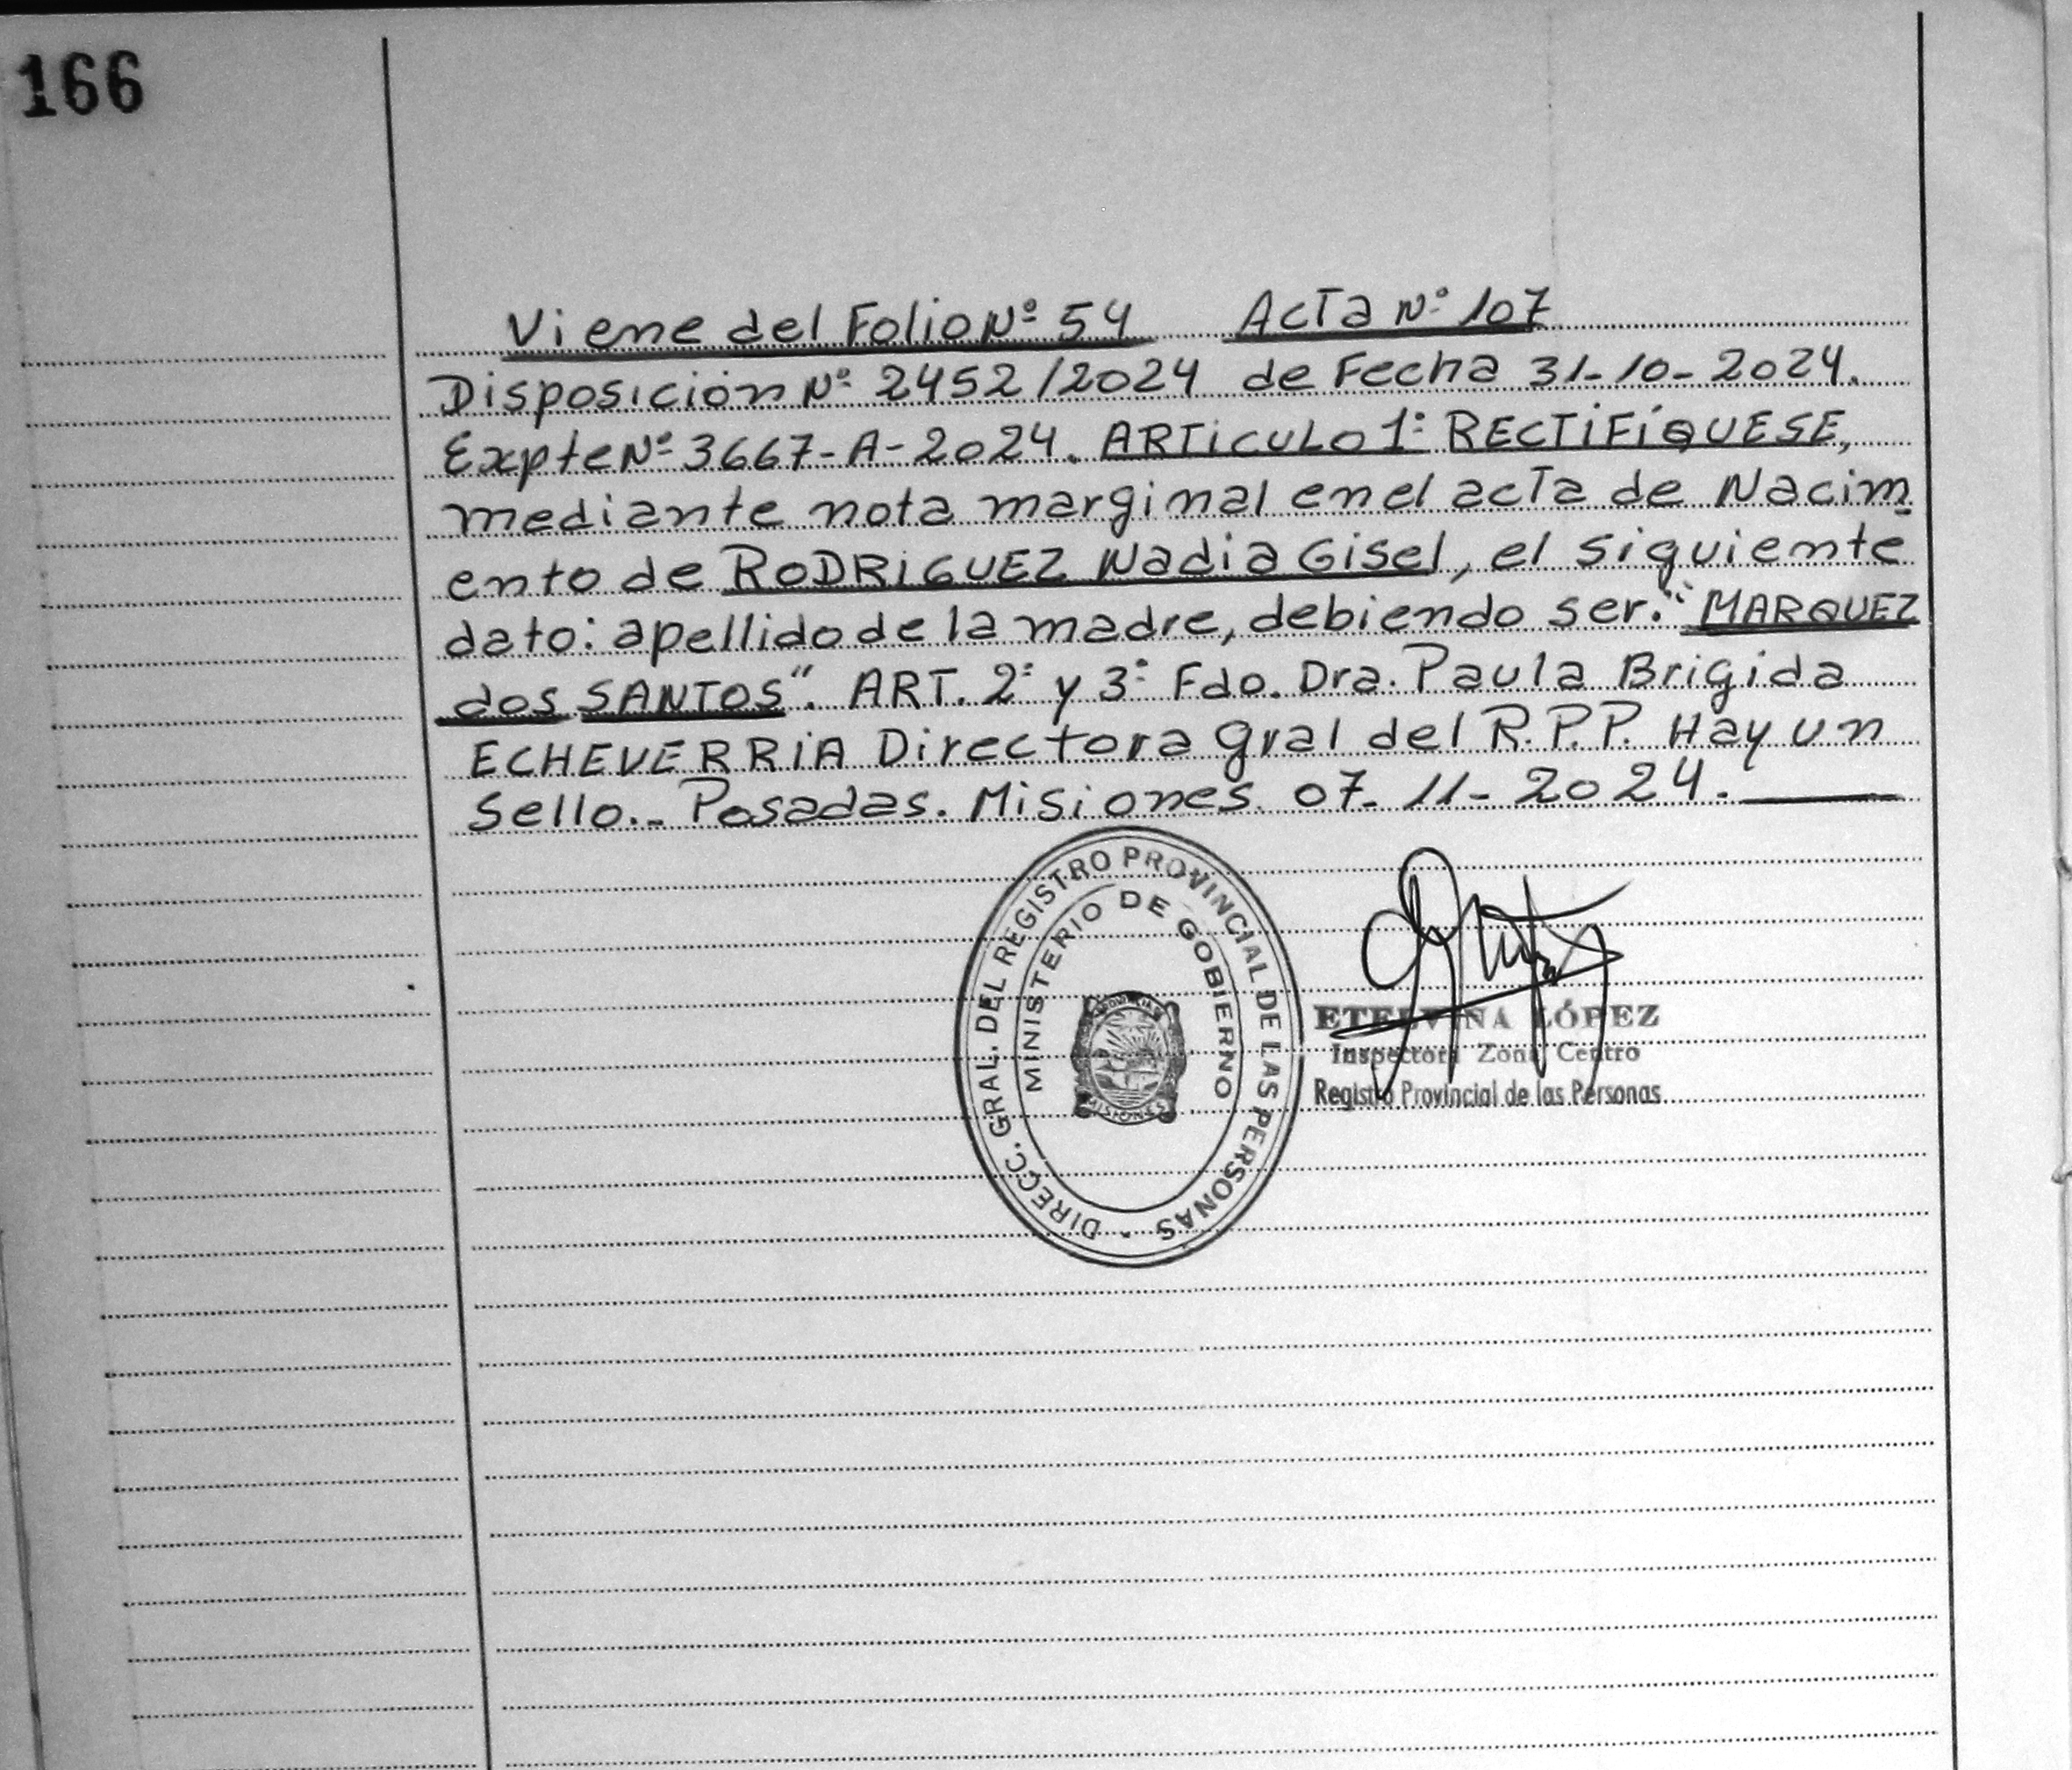 166
Viene del Folio Nº 54 Acta Nº 107
Disposición Nº 2452/2024 de Fecha 31-10-2024.
Expte Nº 3667-A-2024. ARTICULO 1º RECTIFÍQUESE,
mediante nota marginal en el acta de Nacim
ento de RODRIGUEZ Nadia Gisel, el siguiente
dato: apellido de la madre, debiendo ser: "MARQUEZ
dos SANTOS". ART. 2º y 3º Fdo. Dra. Paula Brigida
ECHEVERRIA Directora gral del R.P.P. Hay un
Sello.- Posadas. Misiones 07-11-2024.
DIRECC. GRAL. DEL REGISTRO PROVINCIAL DE LAS PERSONAS
MINISTERIO DE GOBIERNO
MISIONES
ETELVINA LÓPEZ
Inspectora Zona Centro
Registro Provincial de las Personas